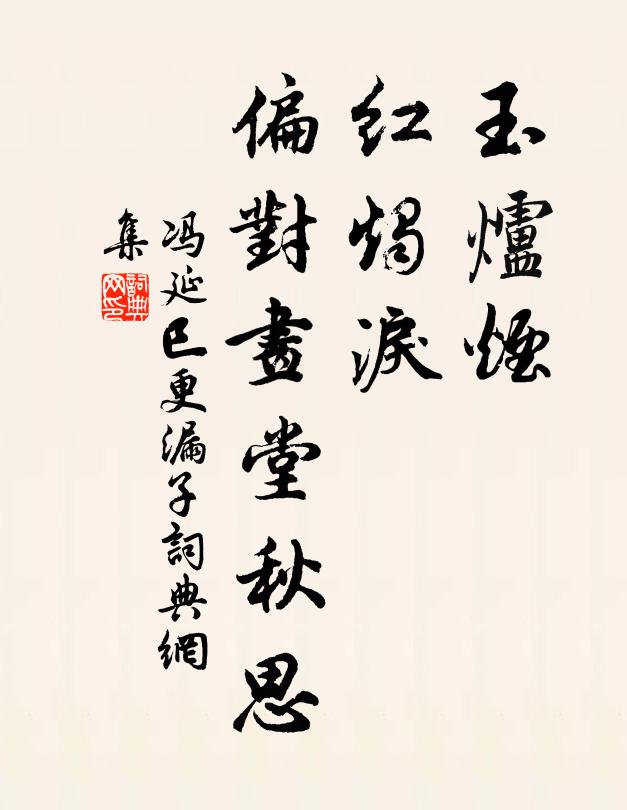 玉爐煙
紅燭淚
偏對畫堂秋思
冯延巳更漏子詞典網
集
詞典网印